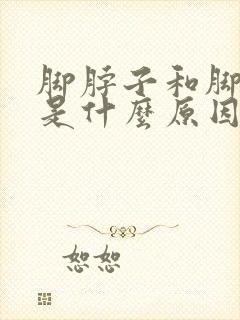 脚脖子和脚
是什麽原因
恕恕